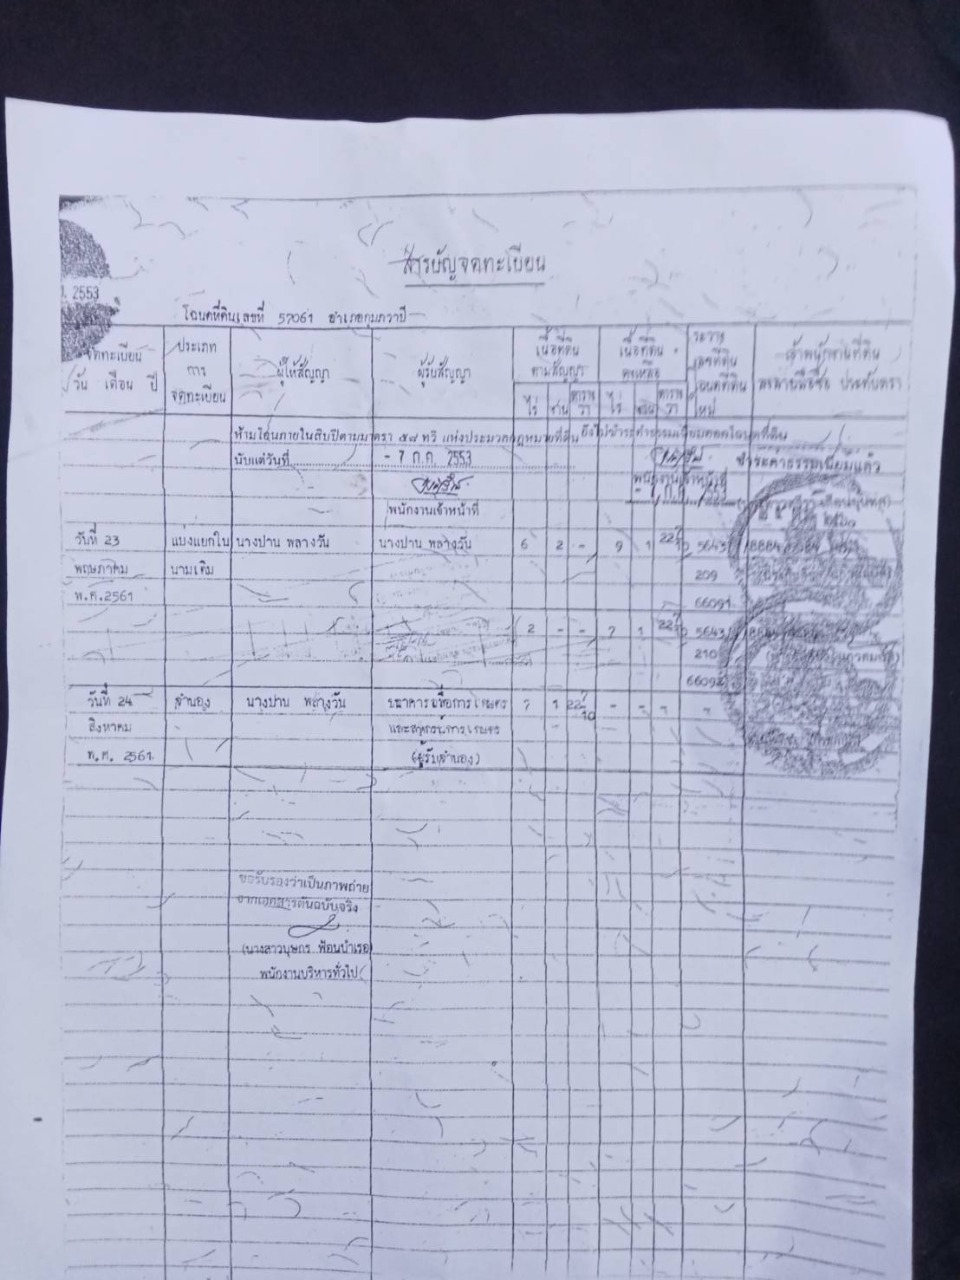 สารบัญจดทะเบียน
2553
โฉนดที่ดินเลขที่ 57061 อำเภอกุมภวาปี
จดทะเบียน วัน เดือน ปี
ประเภท การ จดทะเบียน
ผู้ให้สัญญา
ผู้รับสัญญา
เนื้อที่ดิน ตามสัญญา
ไร่ งาน ตาราง วา
เนื้อที่ดิน คงเหลือ
ไร่ งาน ตาราง วา
ระวาง เลขที่ดิน โฉนดที่ดิน ใหม่
เจ้าพนักงานที่ดิน ลงลายมือชื่อ ประทับตรา
ห้ามโอนภายในสิบปีตามมาตรา ๕๘ ทวิ แห่งประมวลกฎหมายที่ดิน ยังไม่ชำระค่าธรรมเนียมออกโฉนดที่ดิน
นับแต่วันที่ - 7 ก.ค. 2553
ชำระค่าธรรมเนียมแล้ว
พนักงานเจ้าหน้าที่
พนักงานเจ้าหน้าที่
- 7 ก.ค. 2553
วันที่ 23 แบ่งแยกใน นางปาน พลางวัน นางปาน พลางวัน 6 2 - 9 1 22 5643
พฤษภาคม นามเดิม 209
พ.ศ.2561 66091
2 - - 7 1 22 5643
210
66092
วันที่ 24 จำนอง นางปาน พลางวัน ธนาคารเพื่อการเกษตร 7 1 22 10 - - - -
สิงหาคม และสหกรณ์การเกษตร
พ.ศ. 2561 (ผู้รับจำนอง)
ขอรับรองว่าเป็นภาพถ่าย
จากเอกสารต้นฉบับจริง
(นางสาวบุษกร ฟ้อนบำเรอ)
พนักงานบริหารทั่วไป